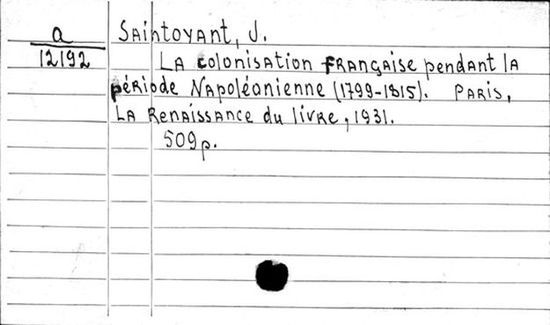 a
12192
Saintoyant, J.
La colonisation française pendant la
période Napoléonienne (1799-1815). Paris,
La Renaissance du livre, 1931.
509p.